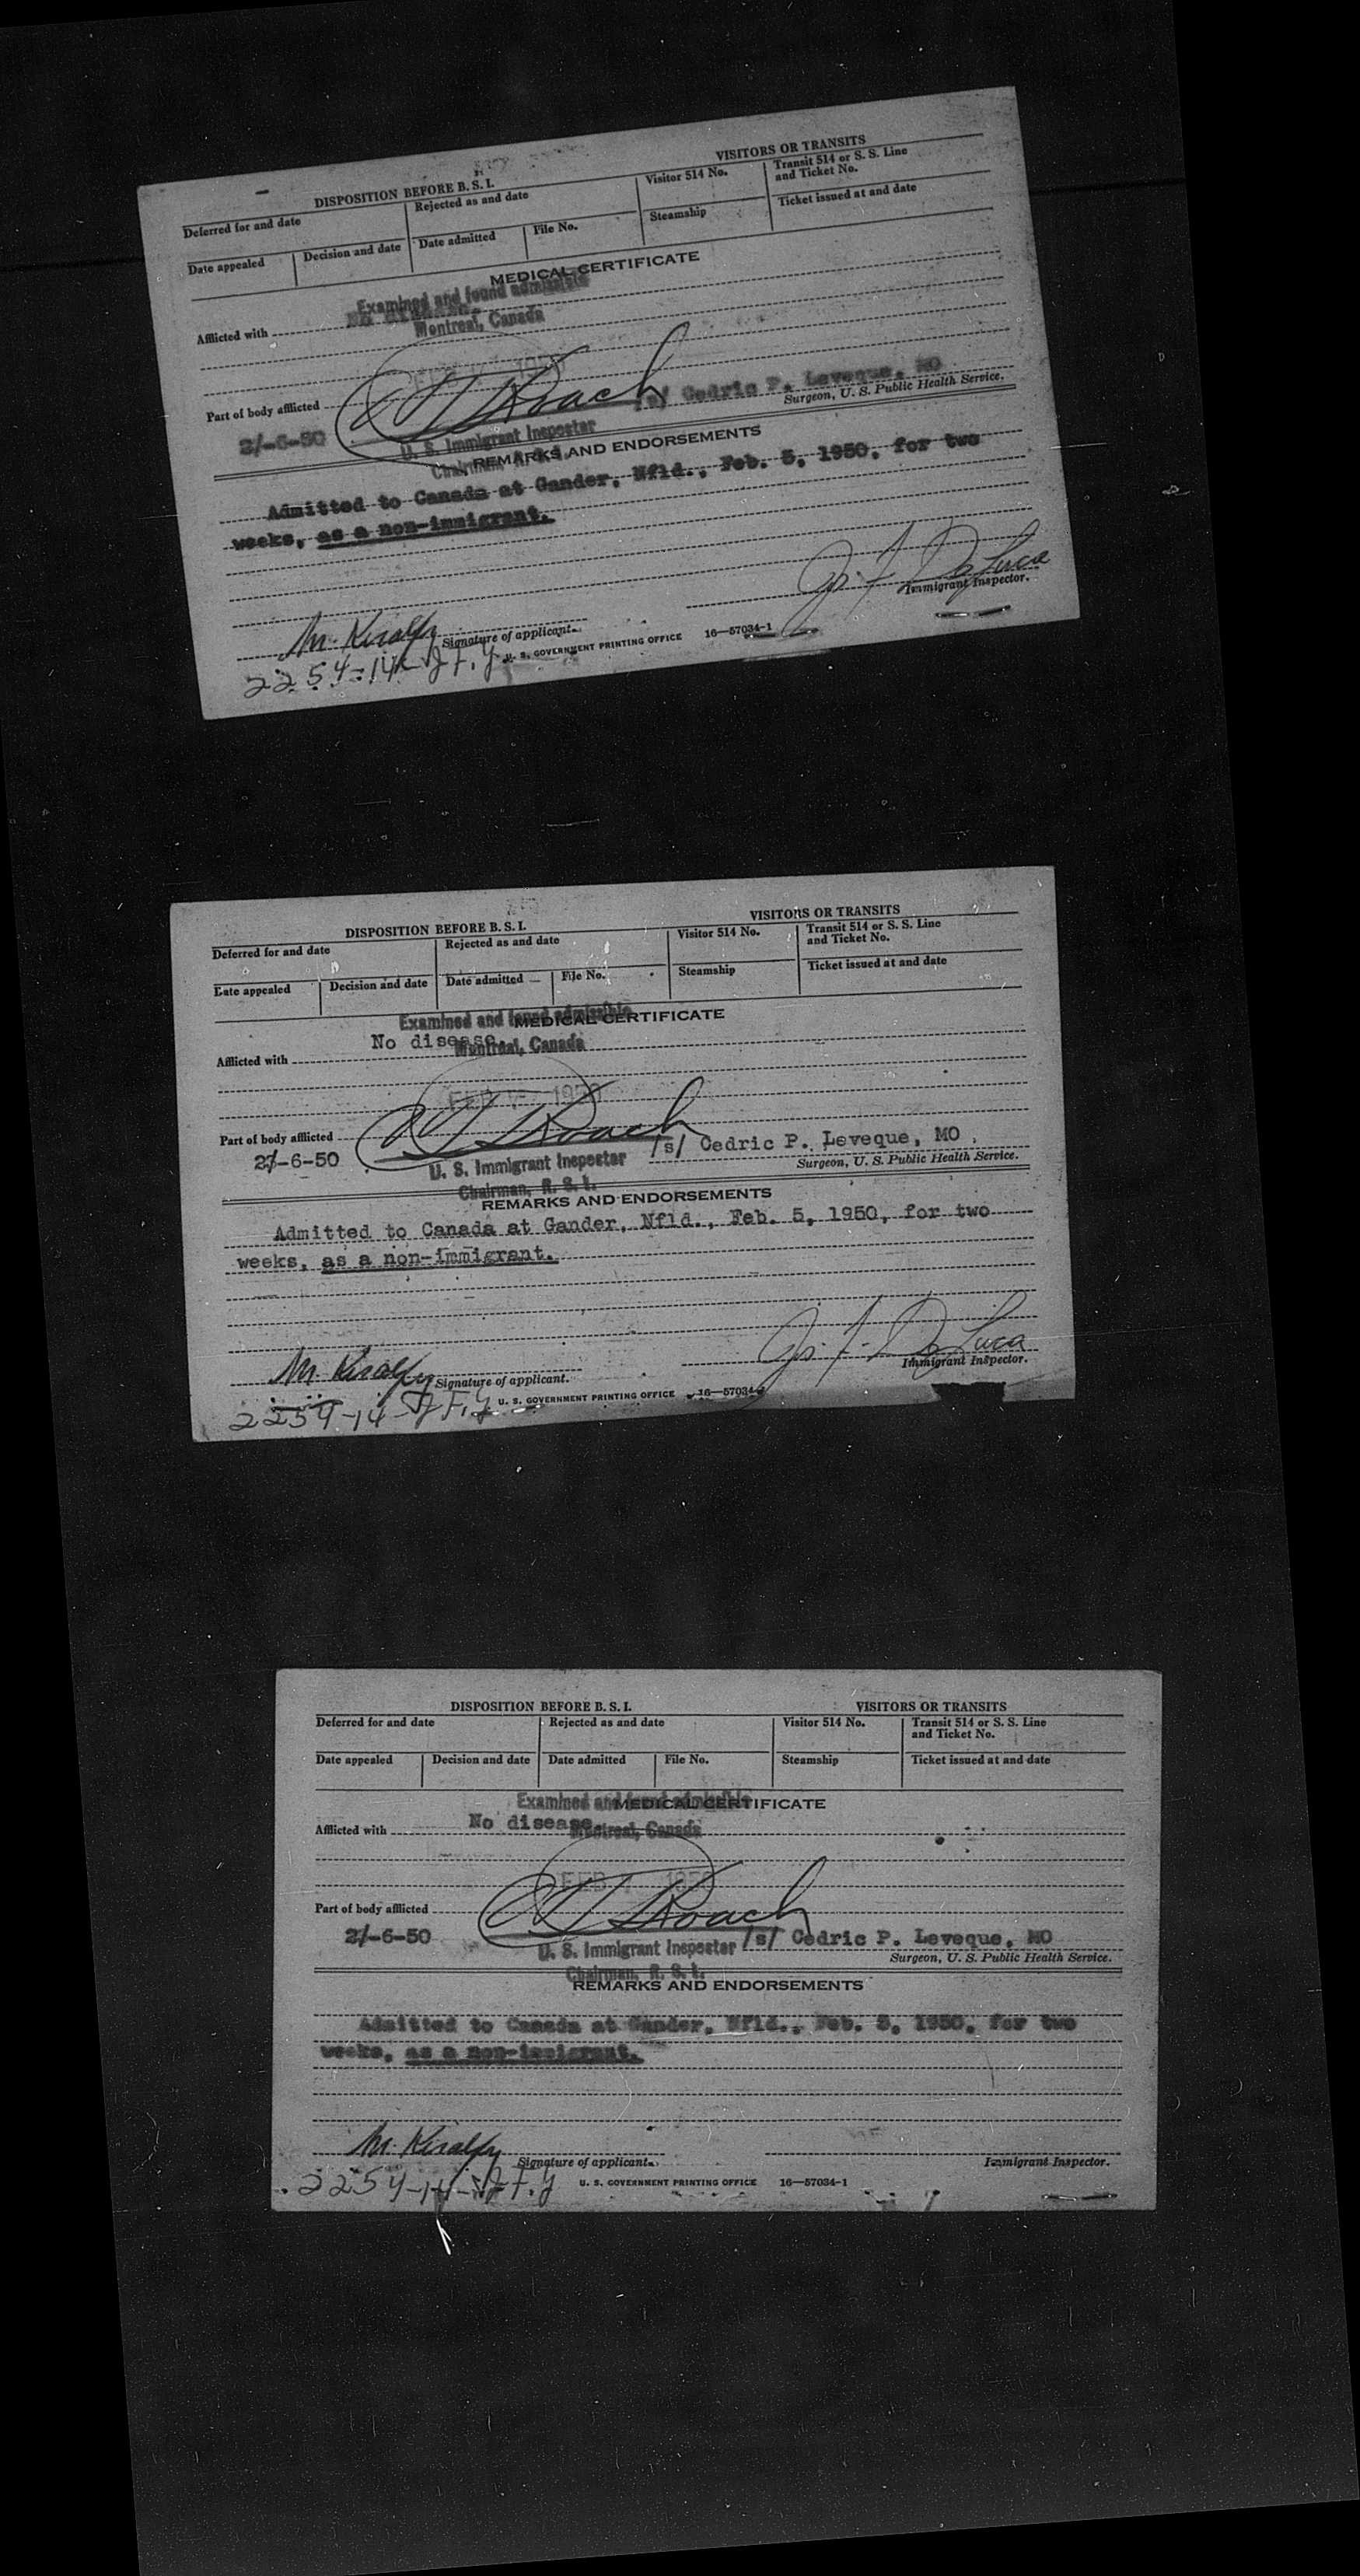 DISPOSITION BEFORE B. S. I.
VISITORS OR TRANSITS
Deferred for and date
Rejected as and date
Visitor 514 No.
Transit 514 or S. S. Line
and Ticket No.
Date appealed
Decision and date
Date admitted
File No.
Steamship
Ticket issued at and date
MEDICAL CERTIFICATE
Examined and found admissible
Afflicted with
Montreal, Canada
Part of body afflicted
Roach
/s/ Cedric P. Leveque, MO
2/-6-50
Surgeon, U. S. Public Health Service.
U. S. Immigrant Inspector
REMARKS AND ENDORSEMENTS
Admitted to Canada at Gander, Nfld., Feb. 5, 1950, for two
weeks, as a non-immigrant.
Immigrant Inspector.
M. Kiralfy
Signature of applicant.
U. S. GOVERNMENT PRINTING OFFICE 16—57034-1
2254-14-
DISPOSITION BEFORE B. S. I.
VISITORS OR TRANSITS
Deferred for and date
Rejected as and date
Visitor 514 No.
Transit 514 or S. S. Line
and Ticket No.
Date appealed
Decision and date
Date admitted
File No.
Steamship
Ticket issued at and date
Examined and found admissible
MEDICAL CERTIFICATE
Afflicted with No disease
Montreal, Canada
Part of body afflicted
Roach
2/-6-50
/s/ Cedric P. Leveque, MO
Surgeon, U. S. Public Health Service.
U. S. Immigrant Inspector
Chairman, B. S. I.
REMARKS AND ENDORSEMENTS
Admitted to Canada at Gander, Nfld., Feb. 5, 1950, for two
weeks, as a non-immigrant.
Immigrant Inspector.
M. Kiralfy
Signature of applicant.
U. S. GOVERNMENT PRINTING OFFICE 16—57034-1
2254-14-
DISPOSITION BEFORE B. S. I.
VISITORS OR TRANSITS
Deferred for and date
Rejected as and date
Visitor 514 No.
Transit 514 or S. S. Line
and Ticket No.
Date appealed
Decision and date
Date admitted
File No.
Steamship
Ticket issued at and date
Examined and found admissible
MEDICAL CERTIFICATE
Afflicted with No disease
Montreal, Canada
Part of body afflicted
Roach
2/-6-50
/s/ Cedric P. Leveque, MO
Surgeon, U. S. Public Health Service.
U. S. Immigrant Inspector
Chairman, B. S. I.
REMARKS AND ENDORSEMENTS
Admitted to Canada at Gander, Nfld., Feb. 5, 1950, for two
weeks, as a non-immigrant.
M. Kiralfy
Signature of applicant.
Immigrant Inspector.
U. S. GOVERNMENT PRINTING OFFICE 16—57034-1
2254-14-